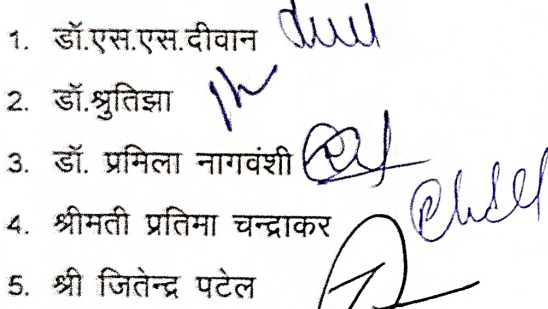 1. डॉ.एस.एस.दीवान
2. डॉ.श्रुतिझा
3. डॉ. प्रमिला नागवंशी
4. श्रीमती प्रतिमा चन्द्राकर
5. श्री जितेन्द्र पटेल